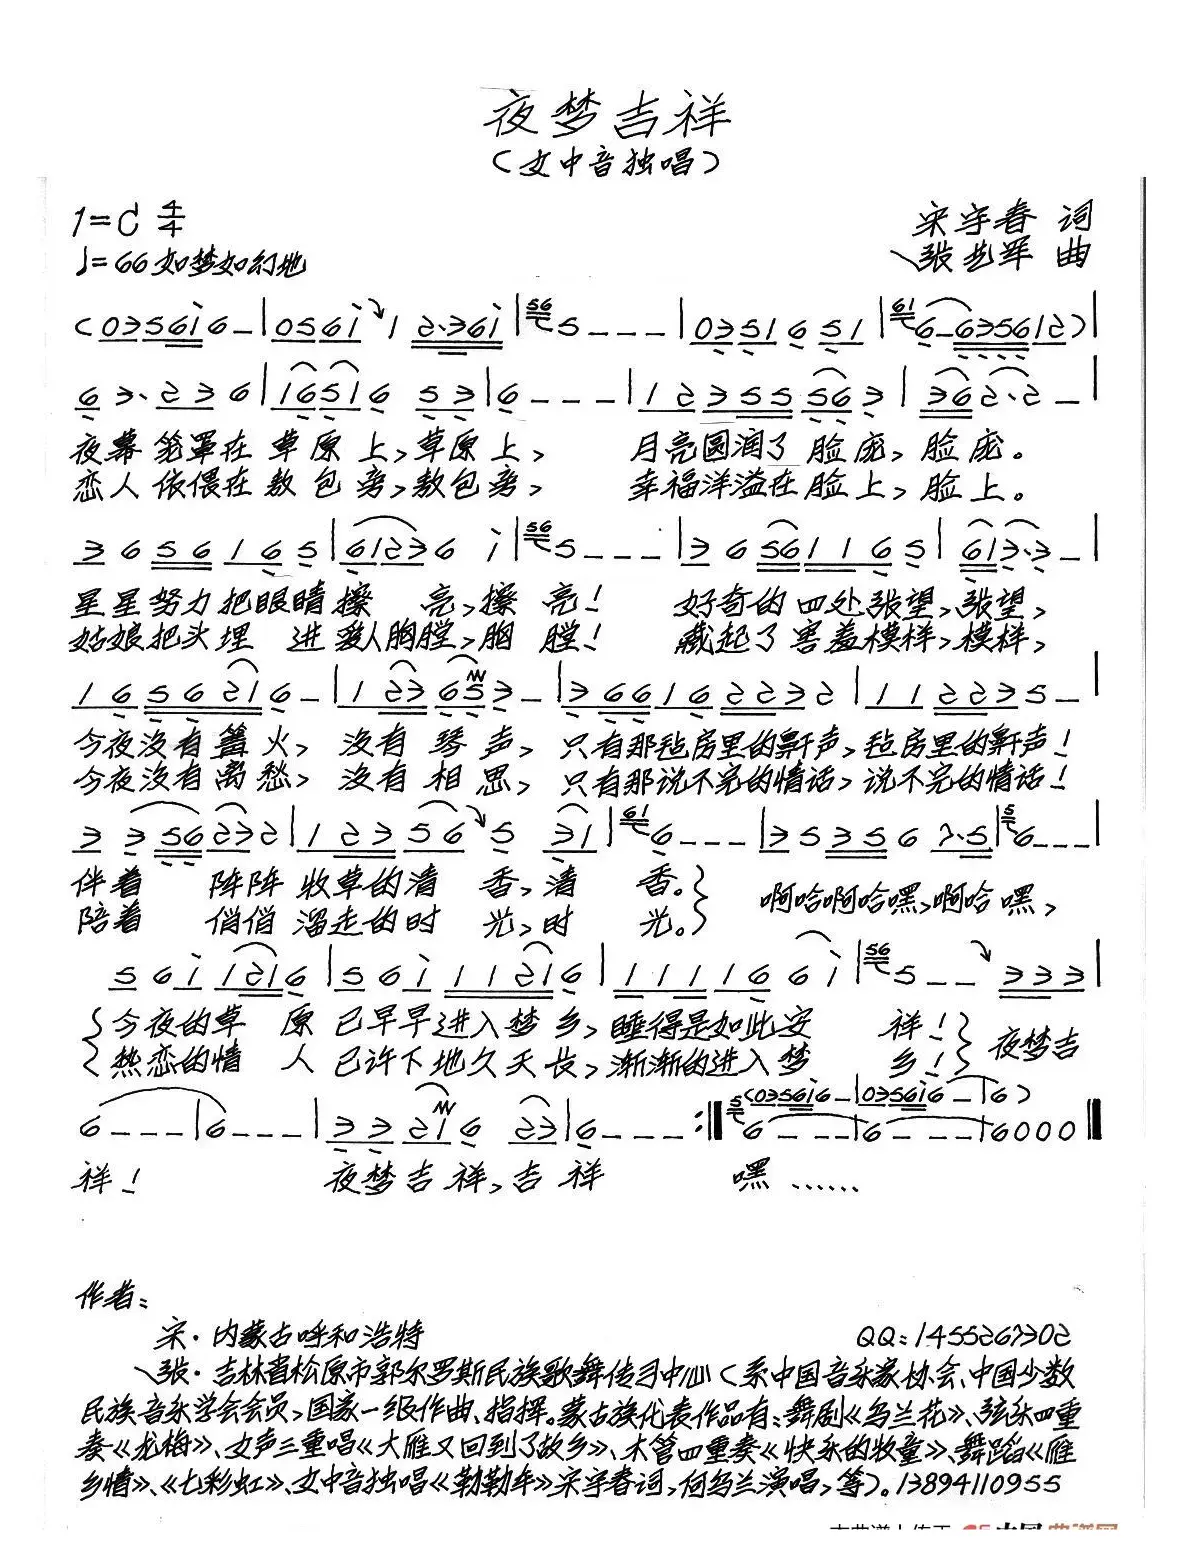 夜梦吉祥
（女中音独唱）
1=C 4/4
宋宇春 词
♩=66 如梦如幻地
张艺军 曲
(03561̇6-|0561̇ 1 2·361̇|565---|0351651|616-635612)|
63·236|16516 53|6---|12355563|362·2-|
夜幕笼罩在草原上,草原上, 月亮圆润了脸庞,脸庞。
恋人依偎在敖包旁,敖包旁, 幸福洋溢在脸上,脸上。
3656165|61236 1̇|565---|36561165|613·3-|
星星努力把眼睛擦亮,擦亮! 好奇的四处张望,张望,
姑娘把头埋进爱人胸膛,胸膛! 藏起了害羞模样,模样,
1656216-|123653-|366162232|112235-|
今夜没有篝火,没有琴声,只有那毡房里的鼾声,毡房里的鼾声!
今夜没有离愁,没有相思,只有那说不完的情话,说不完的情话!
3356232|123565 31|616---|35356 7·5|56---|
伴着 阵阵牧草的清香,清香。 啊哈啊哈嘿,啊哈嘿,
陪着 俏俏溜走的时光,时光。
561̇1216|561̇11216|1111661̇|565-- 333|
今夜的草原已早早进入梦乡,睡得是如此安祥! 夜梦吉
热恋的情人已许下地久天长,渐渐的进入梦乡!
(03561̇6-|03561̇6-|6)
6---|6---|33216 23|6---:‖56---|6---|6000‖
祥! 夜梦吉祥,吉祥 嘿……
作者:
宋·内蒙古呼和浩特 QQ:1455267302
张·吉林省松原市郭尔罗斯民族歌舞传习中心(系中国音乐家协会、中国少数
民族音乐学会会员,国家一级作曲、指挥。蒙古族代表作品有:舞剧《乌兰花》、弦乐四重
奏《龙梅》、女声三重唱《大雁又回到了故乡》、木管四重奏《快乐的牧童》、舞蹈《雁
乡情》、《七彩虹》、女中音独唱《勒勒车》宋宇春词,何乌兰演唱,等)。13894110955